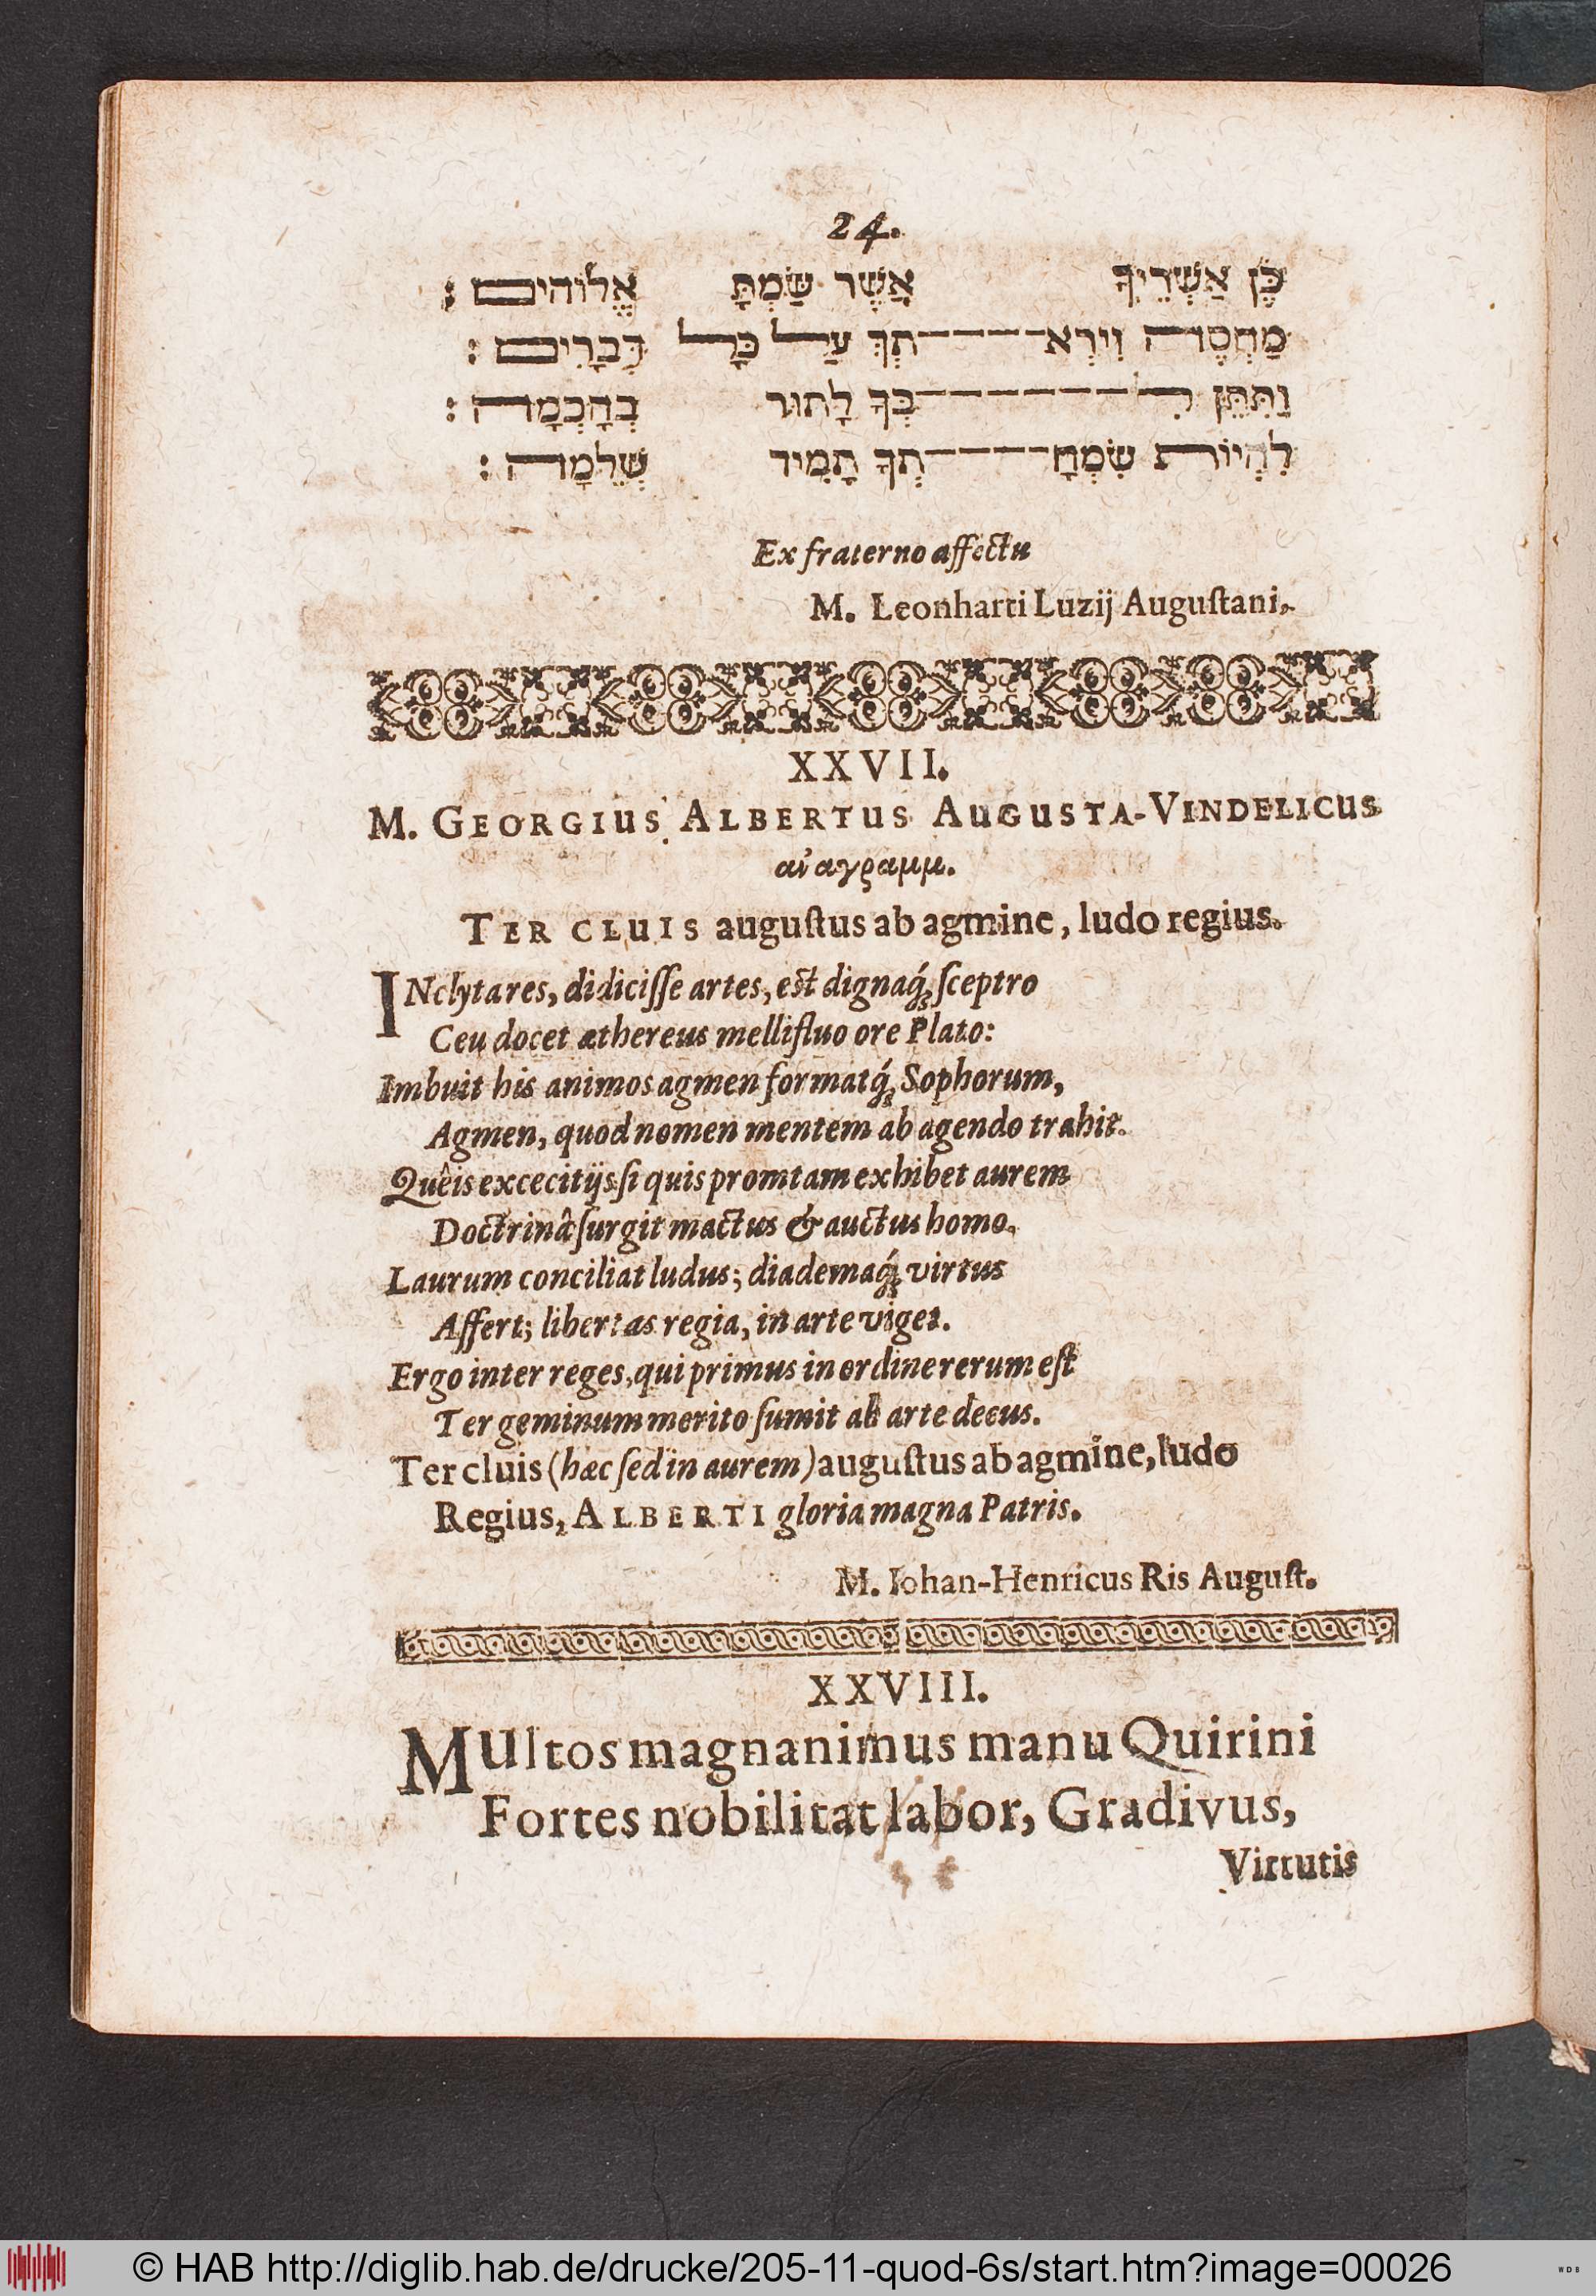 24.
כֵּן אַשְׁרֵיךָ אֲשֶׁר שַׂמְתָּ אֱלוֹהִים :
מַחְסֶה וְיִרְא----תְךָ עַל כָּל דְּבָרִים :
וַתִּתֵּן לִ------בְּךָ לָתוּר בְּחָכְמָה :
לִהְיוֹת שִׂמְחָ----תְךָ תָמִיד שְׁלֵמָה :
Ex fraterno affectu
M. Leonharti Luzij Auguſtani.
XXVII.
M. GEORGIUS ALBERTUS AUGUSTA-VINDELICUS
αναγραμμ.
TER CLUIS auguſtus ab agmine, ludo regius.
INclyta res, didiciſſe artes, eſt dignaq́; ſceptro
Ceu docet æthereus mellifluo ore Plato:
Imbuit his animos agmen formatq́; Sophorum,
Agmen, quod nomen mentem ab agendo trahit.
Quêis excecitijs ſi quis promtam exhibet aurem
Doctrinâ ſurgit mactus & auctus homo.
Laurum conciliat ludus; diademaq́; virtus
Affert; libertas regia, in arte viget.
Ergo inter reges, qui primus in ordine rerum eſt
Ter geminum merito ſumit ab arte decus.
Ter cluis (hæc ſed in aurem) auguſtus ab agmine, ludo
Regius, ALBERTI gloria magna Patris.
M. Iohan-Henricus Ris Auguſt.
XXVIII.
MUltos magnanimus manu Quirini
Fortes nobilitat labor, Gradivus,
Virtutis
© HAB http://diglib.hab.de/drucke/205-11-quod-6s/start.htm?image=00026
WDB